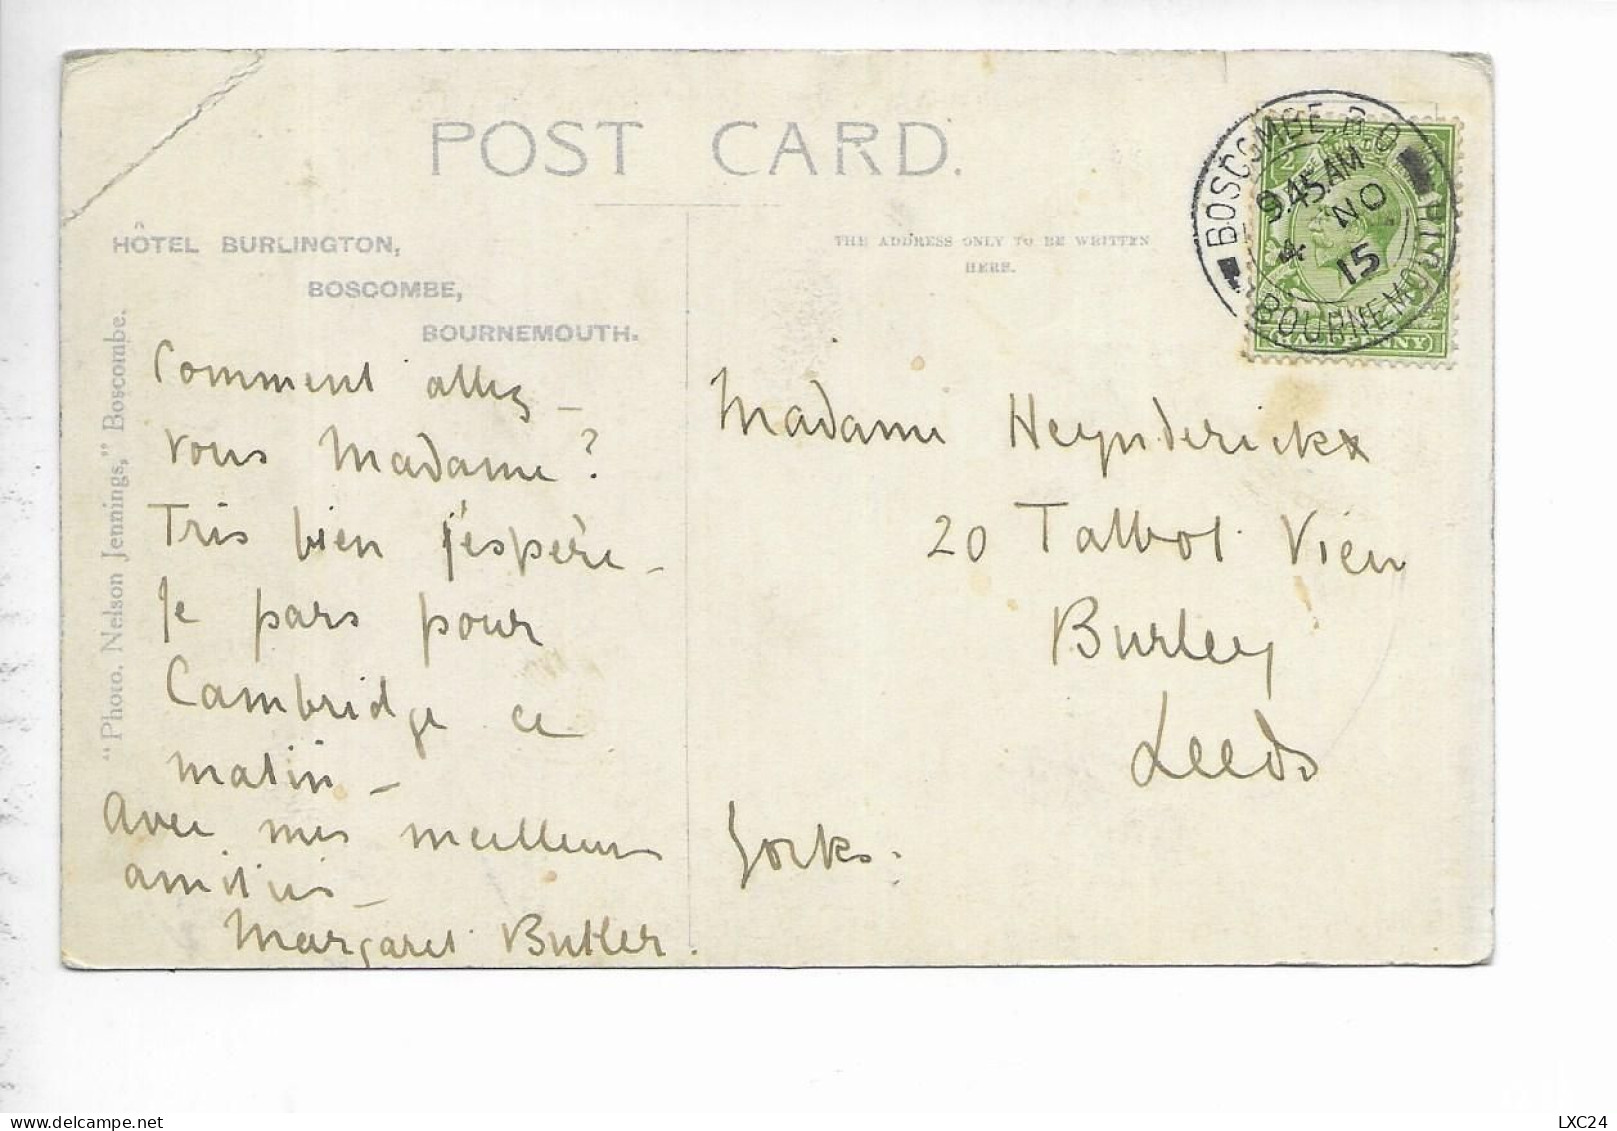 POST CARD.
HÔTEL BURLINGTON,
BOSCOMBE,
BOURNEMOUTH.
"Photo. Nelson Jennings," Boscombe.
THE ADDRESS ONLY TO BE WRITTEN
HERE.
BOSCOMBE. B.O.
9.45 AM
4 NO
15
BOURNEMOUTH
HALFPENNY
Comment allez-
vous Madame?
Très bien j'espère -
Je pars pour
Cambridge ce
matin -
Avec mes meilleurs
amitiés -
Margaret Butler.
Madame Heynderickx
20 Talbot View
Burley
Leeds
Yorks.
LXC24